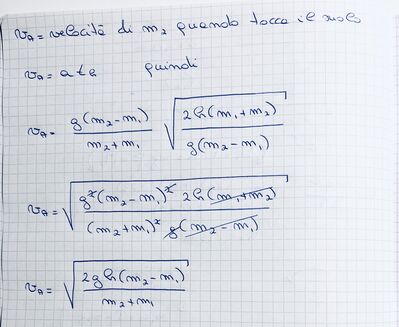 v_A = velocità di m_2 quando tocca il suolo
v_A = a t_h quindi
v_A = \frac{g(m_2 - m_1)}{m_2 + m_1} \sqrt{\frac{2h(m_1 + m_2)}{g(m_2 - m_1)}}
v_A = \sqrt{\frac{g^2(m_2 - m_1)^2 2h(m_1 + m_2)}{(m_2 + m_1)^2 g(m_2 - m_1)}}
v_A = \sqrt{\frac{2gh(m_2 - m_1)}{m_2 + m_1}}